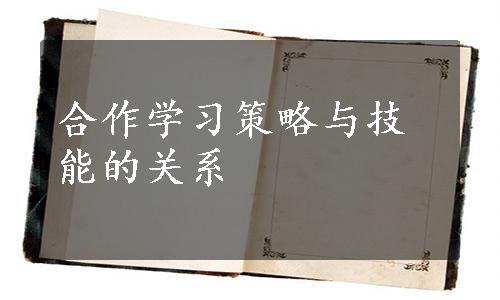 合作学习策略与技
能的关系